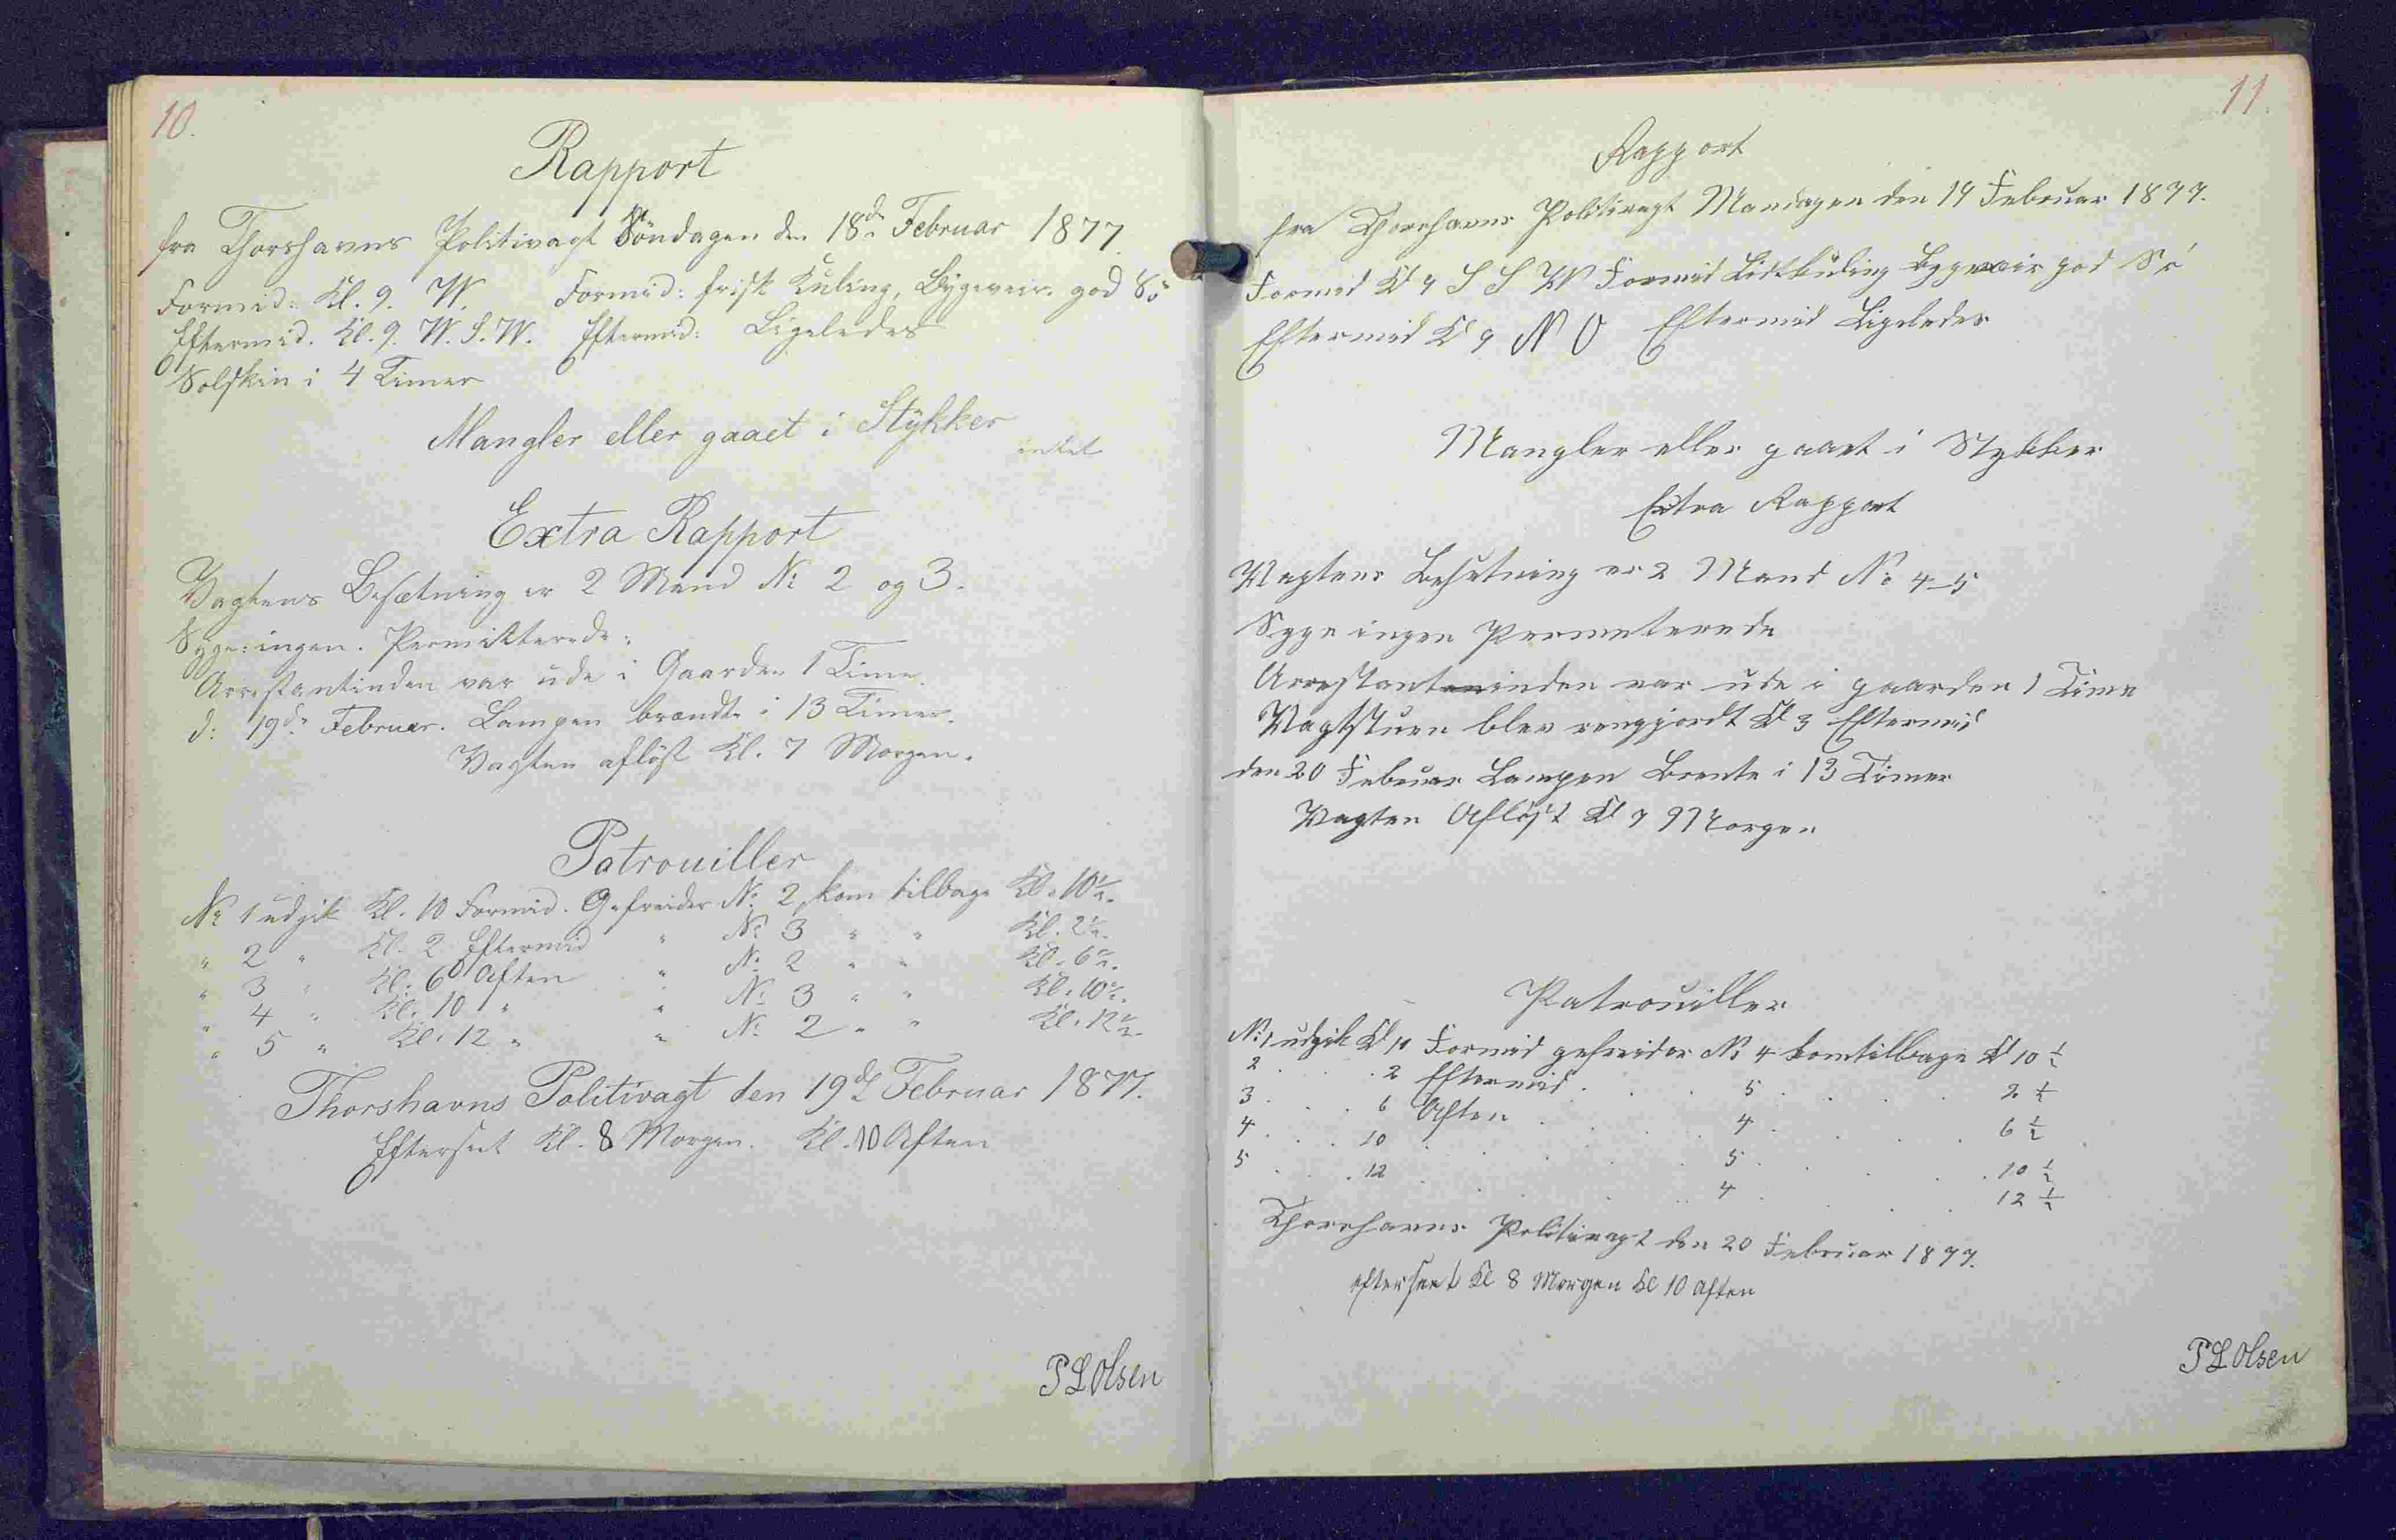 10.
Rapport
fra Thorshavns Politivagt Söndagen den 18de Februar 1877
Formid: Kl. 9. W. Formid: frisk Kuling, Bygeveir. god Sö
Eftermid. Kl. 9. W. S. W. Eftermid: Ligeledes
Solskin i 4 Timer
Mangler eller gaaet i Stykker
intet
Extra Rapport
Vagtens Besætning er 2 Mand No 2 og 3.
Syge: ingen. Permitterede:
Arrestantinden var ude i Gaarden 1 Time.
d: 19de Februar. Lampen brændte i 13 Timer.
Vagten aflöst Kl. 7 Morgen.
Patrouiller
No 1 udgik Kl. 10 Formid. Gefreider No 2, kom tilbage Kl. 10½.
" 2 " Kl. 2 Eftermid " No 3 " " Kl. 2½.
" 3 " Kl. 6 Aften " No 2 " " Kl. 6½.
" 4 " Kl. 10 " " No 3 " " Kl. 10½.
" 5 " Kl. 12 " " No 2 " " Kl. 12½.
Thorshavns Politivagt den 19de Februar 1877.
Efterseet Kl. 8 Morgen. Kl. 10 Aften
P L Olsen
11.
Rapport
fra Thorshavns Politivagt Mandagen den 19 Februar 1877.
Formid Kl 9 S S W Formid Lidt kuling Bygeveir god Sö
Eftermid Kl 9 N O Eftermid Ligeledes
Mangler eller gaaet i Stykker
Extra Rapport
Vagtens Besetning er 2 Mand No 4-5
Syge ingen Permeterede
Arrestantinden var ude i gaarden 1 Time
Vagtstuen blev rengjordt Kl 3 Eftermid
den 20 Februar Lampen Brente i 13 Timer
Vagten Aflöst Kl 7 Morgen
Patrouiller
No 1 udgik Kl 10 Formid gefreider No 4 komtilbage Kl 10 ½
2 . . . 2 Eftermid . . . 5 . . . 2 ½
3 . . . 6 Aften . . . 4 . . . 6 ½
4 . . . 10 . . . 5 . . . 10 ½
5 . . . 12 . . . 4 . . . 12 ½
Thorshavns Politivagt den 20 Februar 1877.
efterseet Kl 8 Morgen Kl 10 Aften
P L Olsen